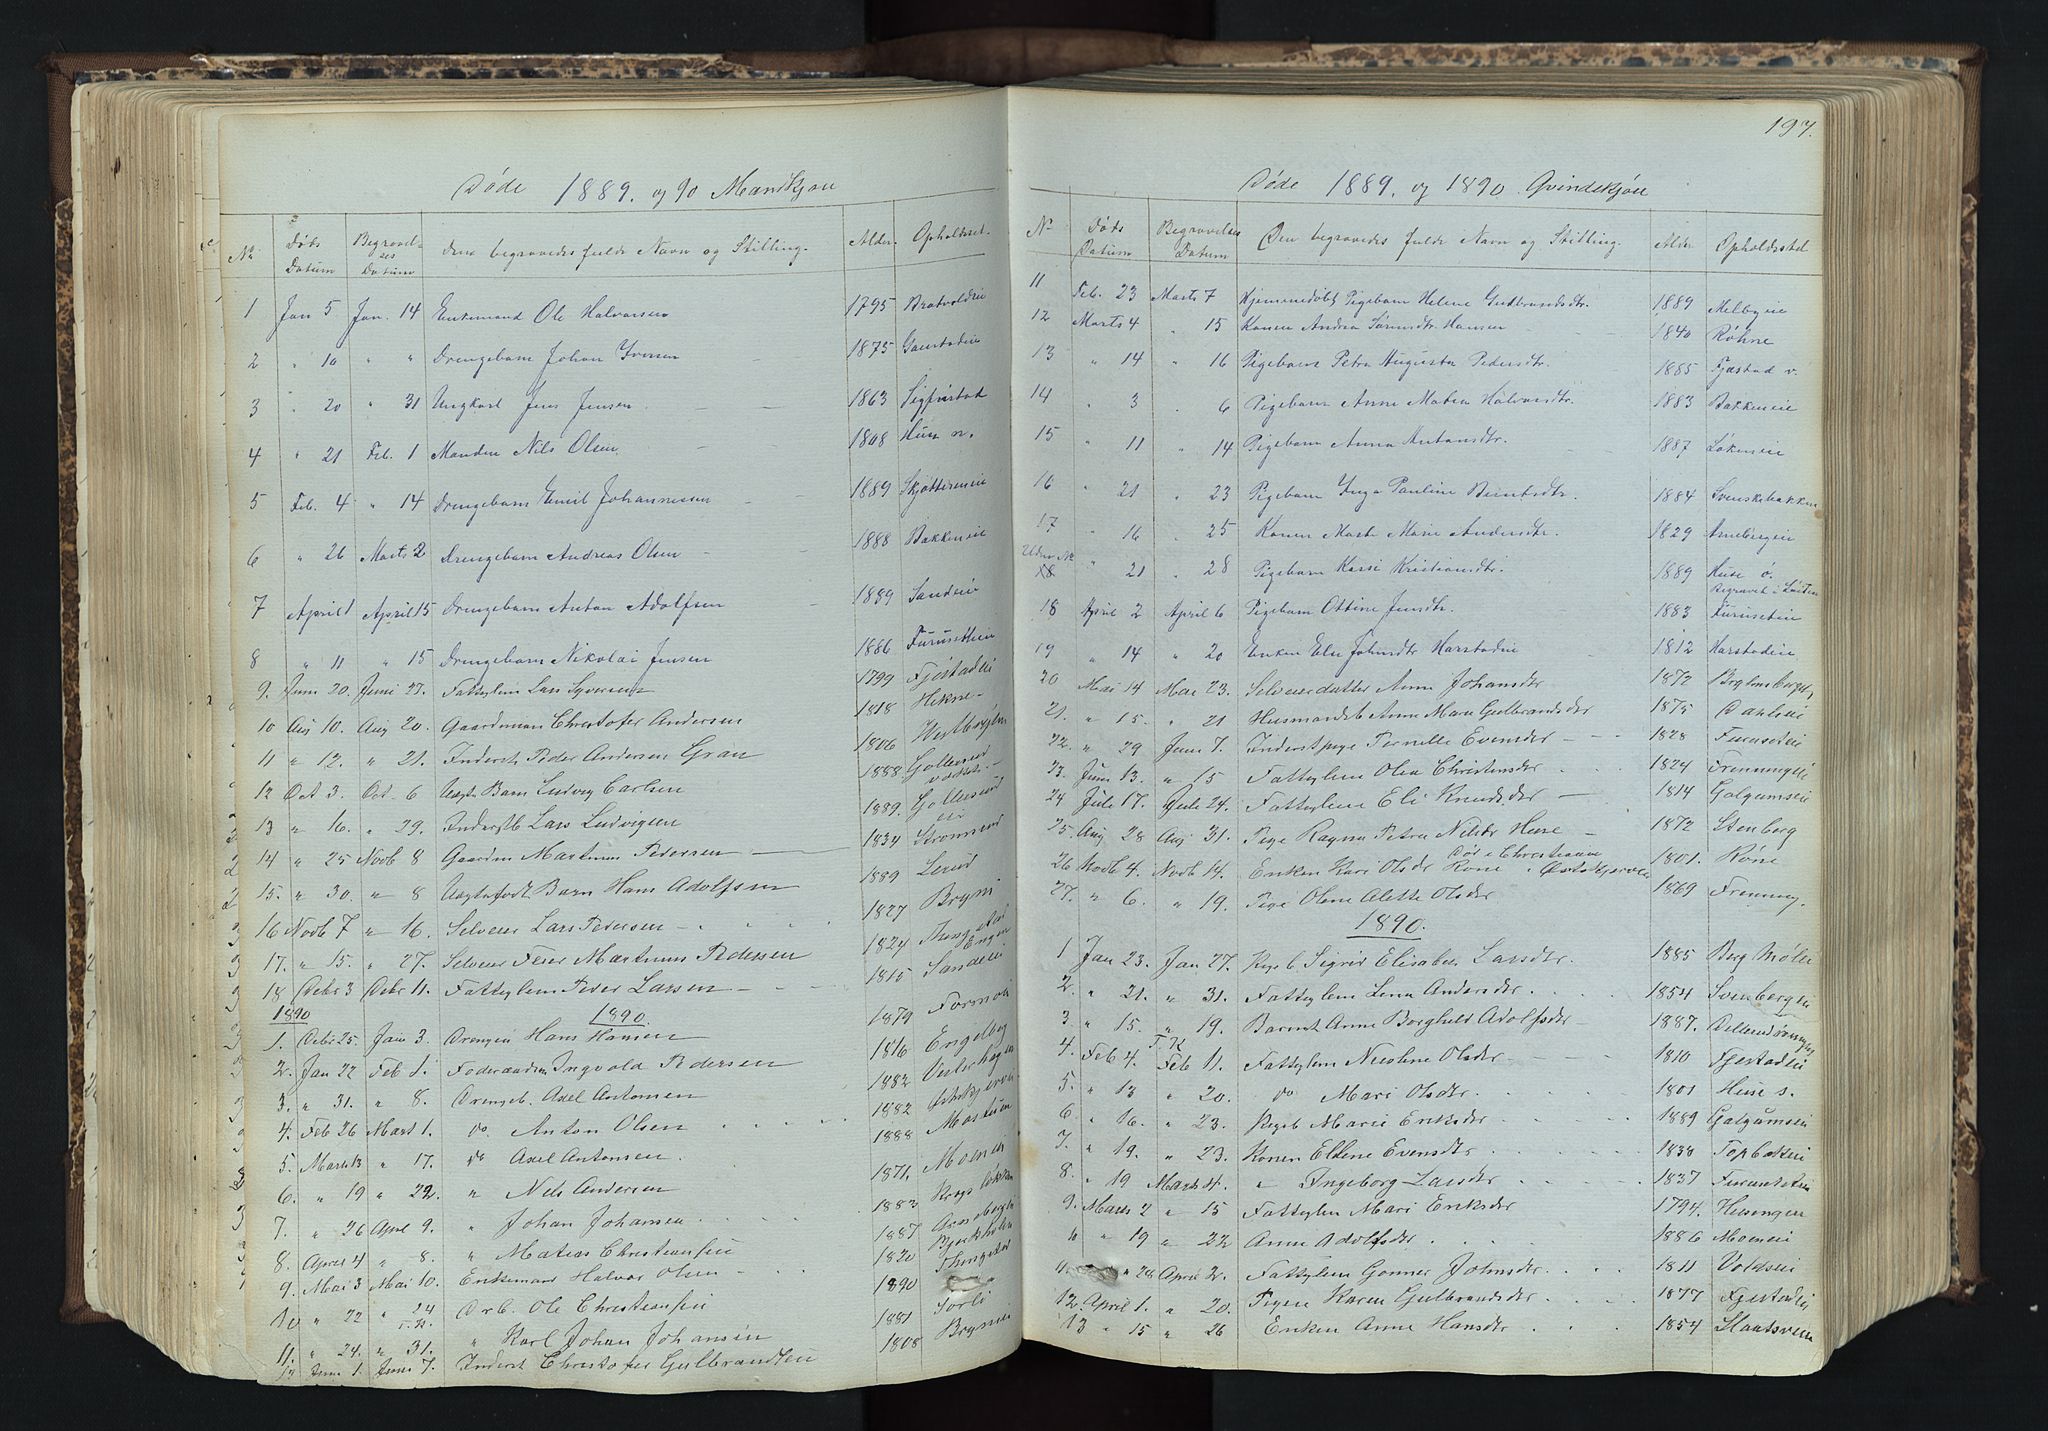 Døde 1889. og 90 Mandkjøn
No Døds Datum Begravelses Datum Den begravedes fulde Navn og Stilling. Alder. Opholdsst.
1 Jan 5 Jan. 14 Enkemand Ole Halvorsen 1795 Bratvoldeie
2 " 10 " " Drengebarn Johan Iversen 1875 Gaustadeie
3 " 20 " 31 Ungkarl Jens Jensen 1863 Sigfristad
4 " 21 Feb. 1 Manden Nils Olsen 1808 Huse n.
5 Feb. 4 " 14 Drengebarn Emil Johannessen 1889
6 " 26 Marts 2 Drengebarn Andreas Olsen 1888 Bakkeneie
7 April 1 April 15 Drengebarn Anton Adolfsen 1889 Sandeie
8 " 11 " 15 Drengebarn Nikolai Jensen 1886 Furuseteie
9. Juni 20. Juni 27. Fattiglem Lars Syversen 1799 Fjøstadeie
10 Aug 10. Aug 20. Gaardman Christofer Andersen 1818 Hekne
11 " 12. " 21. Inderst Peder Andersen Gran 1806
12 Oct 3. Oct. 6 Uegte Barn Ludvig Carlsen 1888
13 " 16. " 29. Inderstb Lars Ludvigsen 1889.
14 " 25 Novb 8 Gaardm Martinus Pedersen 1834 Stromsød
15. " 30. " 8 Uegtefødt Barn Hans Adolfsen 1889 Lerud
16 Novb 7 " 16. Selveier Lars Pedersen 1827 Bryni
17. " 15. " 27. Selveier Peder Martinus Pedersen 1824
18 Decbr 3 Decbr 11. Fattiglem Peder Larsen 1815 Sandeie
1890 1890.
1. Decbr 25. Jan 3. Drengen Hans Hansen 1879 Formoe
2. Jan 22 Feb 1. Føderaadsm Ingvold Pedersen 1816 Engelberg
3. " 31. " 8. Drengeb. Axel Antonsen 1882
4. Feb 26 Mart 1. do Anton Olsen 1882
5. Marts 13 " 17. do Axel Antonsen. 1888
6. " 19 " 22. " Nils Andersen 1871. Moeneie
7. " 26 Apr 9. " Johan Johansen 1883
8. April 4 " 8. " Matias Christiansen 1887
9. Mai 3 Mai 10. Enkemand Halvor Olsen 1820
10 " 22 " 24 T.K. Drb. Ole Christiansen 1890
11. " 24. " 31. " Karl Johan Johansen 1881 Sørli
12 Juni 1. Juni 7. Inderst Christofer Gulbrandsen 1808 Brynieie
197.
Døde 1889. og 1890 Qvindekjøn
No Døds Datum Begravelses Datum Den begravedes fulde Navn og Stilling. Alder Opholdssted
11 Feb. 23 Marts 7 Hjemmedøbt Pigebarn Helene Gudbrandsdtr. 1889 Melbyeie
12 Marts 4 " 15 Konen Andrea Sørensdtr. Hansen 1840 Rohne
13 " 14 " 16 Pigebarn Petra Augusta Pedersdtr. 1885 Fjæstad v.
14 " 3 " 6 Pigebarn Anne Matea Halvorsdtr. 1883 Bakkeneie
15 " 11 " 14 Pigebarn Anna Antonsdtr. 1887 Løkeneie
16 " 21 " 23 Pigebarn Inga Pauline Berntsdtr. 1884 Svenskebakken
17 " 16 " 25 Konen Marte Marie Andersdtr. 1829 Arnebergeie
Uden No 18 " 21 " 28 Pigebarn Kersi Kristiansdtr. 1889 Huse ø. Begravet i Løiten
18 April 2 April 6 Pigebarn Ottine Jensdtr. 1883 Furuseteie
19 " 14 " 20 Enken Eli Johnsdtr Harstadeie 1812 Harstadeie
20 Mai 14 Mai 23. Selveierdatter Anne Johansdtr 1872
21. " 15. " 21 Husmandsb Anne Marie Gulbrandsdtr 1875
22. " 29 Juni 7. Inderstpige Pernille Evensdtr 1828 Furuseteie
23. Juni 13. " 15 Fattiglem Olea Christensdtr 1824
24 Juli 17. Juli 24. Fattiglem Eli Knudsdtr 1814 Galgumseie
25. Aug 28 Aug 31. Pige Ragna Petra Nilsdtr Huse 1872 Stenberg
26 Novb 4. Novb 14. Enken Kari Olsdr Røne Død i Christiania 1801. Røne
27. " 6. " 19. Pige Olene Alette Olsdtr 1869
1890.
1 Jan 23. Jan 27. Pigeb. Sigrid Elisabet Larsdtr. 1885
2. " 21. " 31. Fattiglem Lena Andersdtr 1854
3. " 15. " 19. Barnet Anne Borghild Adolfsdtr 1887.
4. Feb 4. T.K Feb 11. Fattiglem Nicoline Olsdtr 1810 Fjestadeie
5. " 13 " 20. do Mari Olsdtr. 1801 Huse s.
6. " 16. " 23. Pigeb Marie Eriksdtr 1889 Galgumseie
7. " 19. " 23. Konen Eldene Evensdtr 1838
8. " 19 Marts 4. " Ingeborg Larsdtr 1837 Furuseteie
9. Marts 2 " 15 Fattiglem Mari Eriksdtr 1794.
10 " 19 " 22 Anne Adolfsdtr 1886 Moeneie
11. " 28 April 2. Fattiglem Gonner Johnsdtr 1811 Voldseie
12. April 1. " 20. Pigen Karen Gulbrandsdtr 1877 Fjestadeie
13 " 15 " 26 Enken Anne Hansdtr 1854